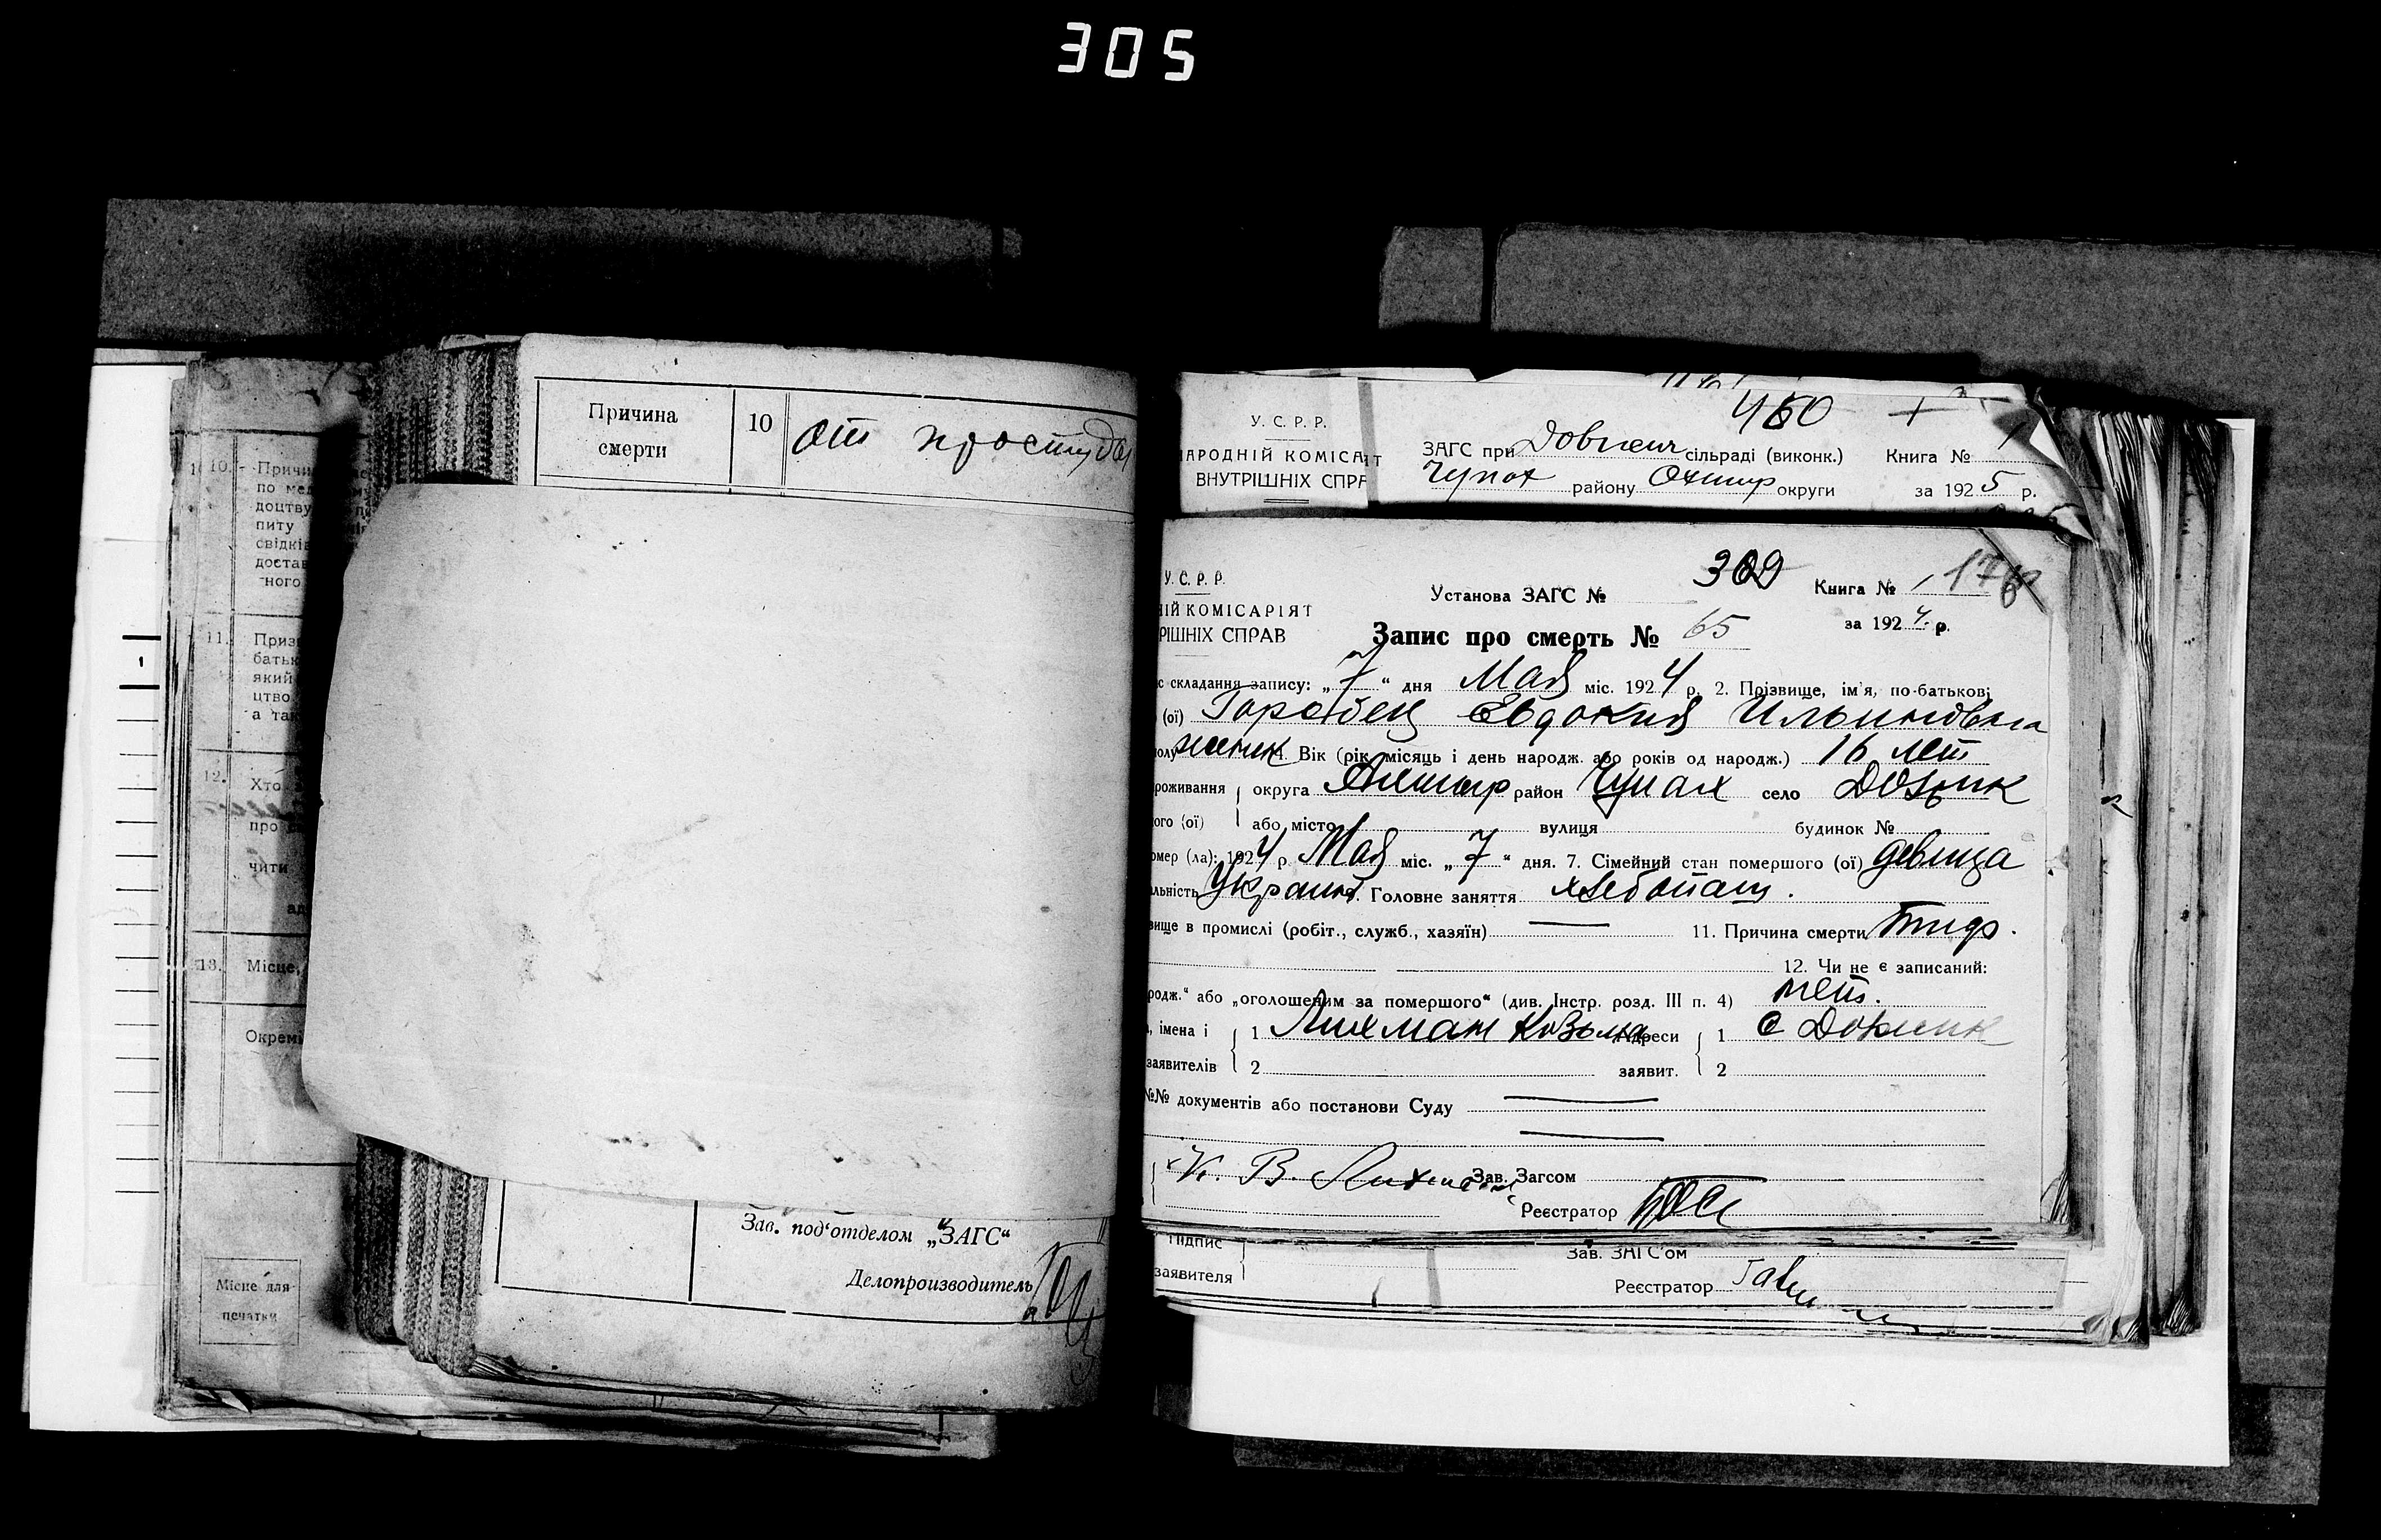 305
10.
Причи
по мед
доцтву
питу
свідків
достав
ного
11.
Приз
батьк
який
цтво
а так
12.
Хто
про
чити
ад
13.
Місце,
Окремі
Місце для
печатки
Причина
смерти
10
от простуды
Зав. под'отделом „ЗАГС“
Делопроизводитель
У. С. Р. Р.
АРОДНІЙ КОМІСАТ
ВНУТРІШНІХ СПР
460
ЗАГС при сільраді (виконк.) Книга № 1
Чупах району Охтир округи за 1925 р.
У. С. Р. Р.
ІЙ КОМІСАРІЯТ
РІШНІХ СПРАВ
309
Установа ЗАГС № Книга № 1 176
Запис про смерть № 65 за 1924 р.
с складання запису: „7“ дня Мая міс. 1924 р. 2. Прізвище, ім'я, по-батькові
(ої) Горобец Евдокия Ильиновна
полу женск 4. Вік (рік, місяць і день народж. або років од народж.) 16 лет
роживання округа Ахтыр район Чупах село Довжик
ого (ої) або місто вулиця будинок №
омер (ла): 1924 р. Мая міс. „7“ дня. 7. Сімейний стан помершого (ої) девица
льність Украин 9. Головне заняття хлебопаш.
вище в промислі (робіт., служб., хазяїн) — 11. Причина смерти тиф.
12. Чи не є записаний:
родж.“ або „оголошеним за помершого“ (див. Інстр. розд. III п. 4) нет.
, імена і 1 Лихман Козьма Адреси 1 с Довжик
заявителів 2 заявит. 2
№№ документів або постанови Суду —
К. В. Лихман Зав. Загсом
Реєстратор
Підпис Зав. ЗАГС'ом
заявителя Реєстратор